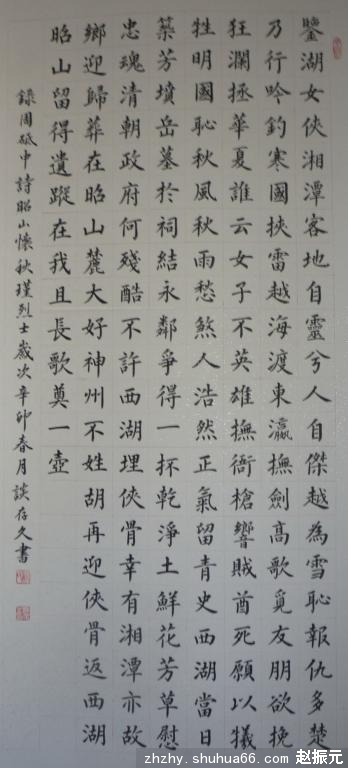 鑒湖女俠湘潭客地自靈兮人自傑越為雪恥報仇多楚
乃行吟釣寒國挾雷越海渡東瀛撫劍高歌覓友朋欲挽
狂瀾拯華夏誰云女子不英雄撫衙槍響賊酋死願以犧
牲明國恥秋風秋雨愁煞人浩然正氣留青史西湖當日
築芳墳岳墓於祠結永鄰爭得一抔乾淨土鮮花芳草慰
忠魂清朝政府何殘酷不許西湖埋俠骨幸有湘潭亦故
鄉迎歸葬在昭山麓大好神州不姓胡再迎俠骨返西湖
昭山留得遺蹤在我且長歌奠一壺
錄周砥中詩昭山懷秋瑾烈士歲次辛卯春月談存久書
zhzhy.shuhua66.com 赵振元